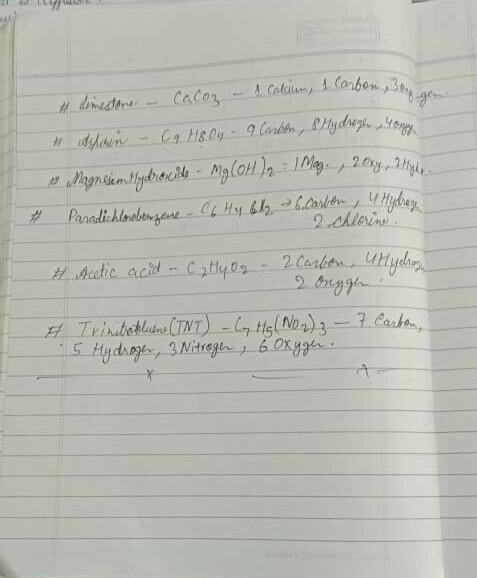 # Limestone - CaCO3 - 1 Calcium, 1 Carbon, 3 oxygen.
# - C9 H8O4 - 9 Carbon, 8 Hydrogen, 4 oxy
# Magnesium Hydroxide - Mg(OH)2 = 1 Mag., 2 Oxy, 2 Hydr.
# Paradichlorobenzene - C6 H4 Cl2 → 6 Carbon, 4 Hydroge
2 chlorine.
# Acetic acid - C2H4O2 - 2 Carbon, 4 Hydrogen
2 Oxygen.
# Trinitrotoluene (TNT) - C7 H5(NO2)3 - 7 Carbon,
5 Hydrogen, 3 Nitrogen, 6 Oxygen.